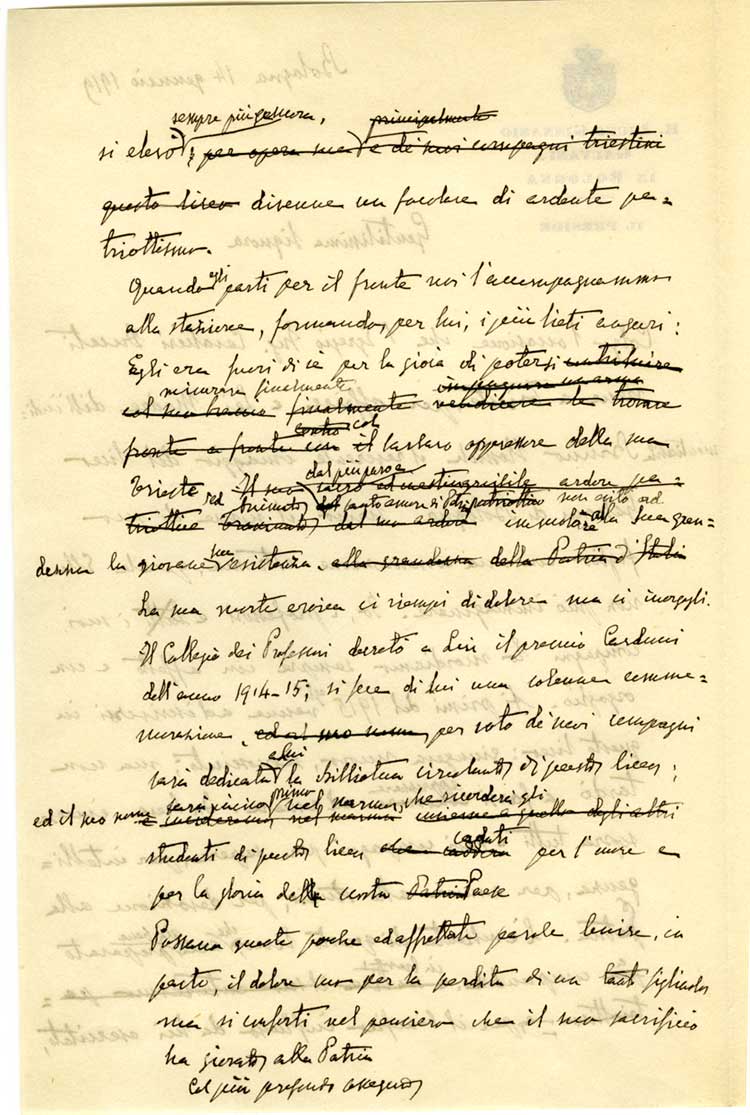 sempre più ancora, principalmente
si elevò, per opera sua e de' suoi compagni triestini
questo liceo divenne un focolare di ardente pa=
triottismo.
Quando egli partì per il fronte noi l'accompagnammo
alla stazione, formando, per lui, i più lieti auguri:
Egli era fuori di sè per la gioia di potersi contribuire
misurare finalmente impugnare un'arma
col suo braccio finalmente vendicare le
contro col
fronte a fronte con il tartaro oppressore della sua
dal più puro e
Trieste ed Il suo sacro ed inestinguibile ardore pa=
santo amore di Patria patriottico non esitò ad
triottico del suo ardore immolare alla sua gran=
dezza la giovane sua esistenza. alla grandezza della Patria d'Italia
La sua morte eroica ci riempì di dolore ma ci inorgoglì.
Il Collegio dei Professori decretò a Lui il premio Carducci
dell'anno 1914-15; si fece di lui una solenne comme=
morazione, ed al suo nome, per voto de' suoi compagni
a lui
sarà dedicata la biblioteca circolante di questo liceo;
primo
ed il suo nome sarà inciso nel marmo, che ricorderà gli
e incideremo nel marmo insieme a quello degli altri
caduti
studenti di questo liceo che caddero per l'onore e
per la gloria della nostra Patria Paese
Possano queste poche ed affrettate parole lenire, in
parte, il dolore suo per la perdita di un tanto figliuolo
ma si conforti nel pensiero che il suo sacrificio
ha giovato alla Patria
Col più profondo ossequio